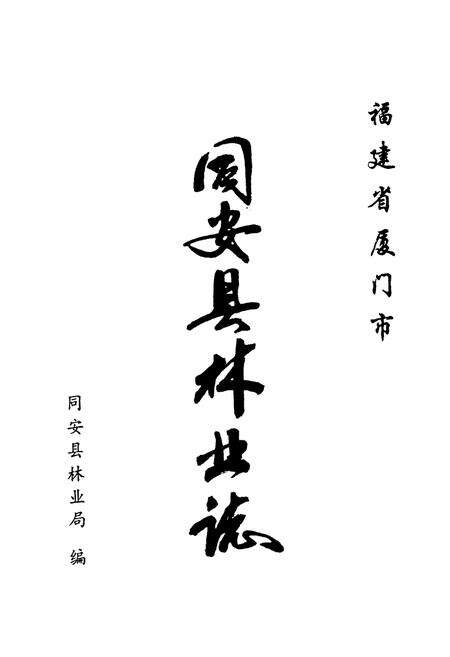 福建省厦门市
同安县林业誌
同安县林业局 编